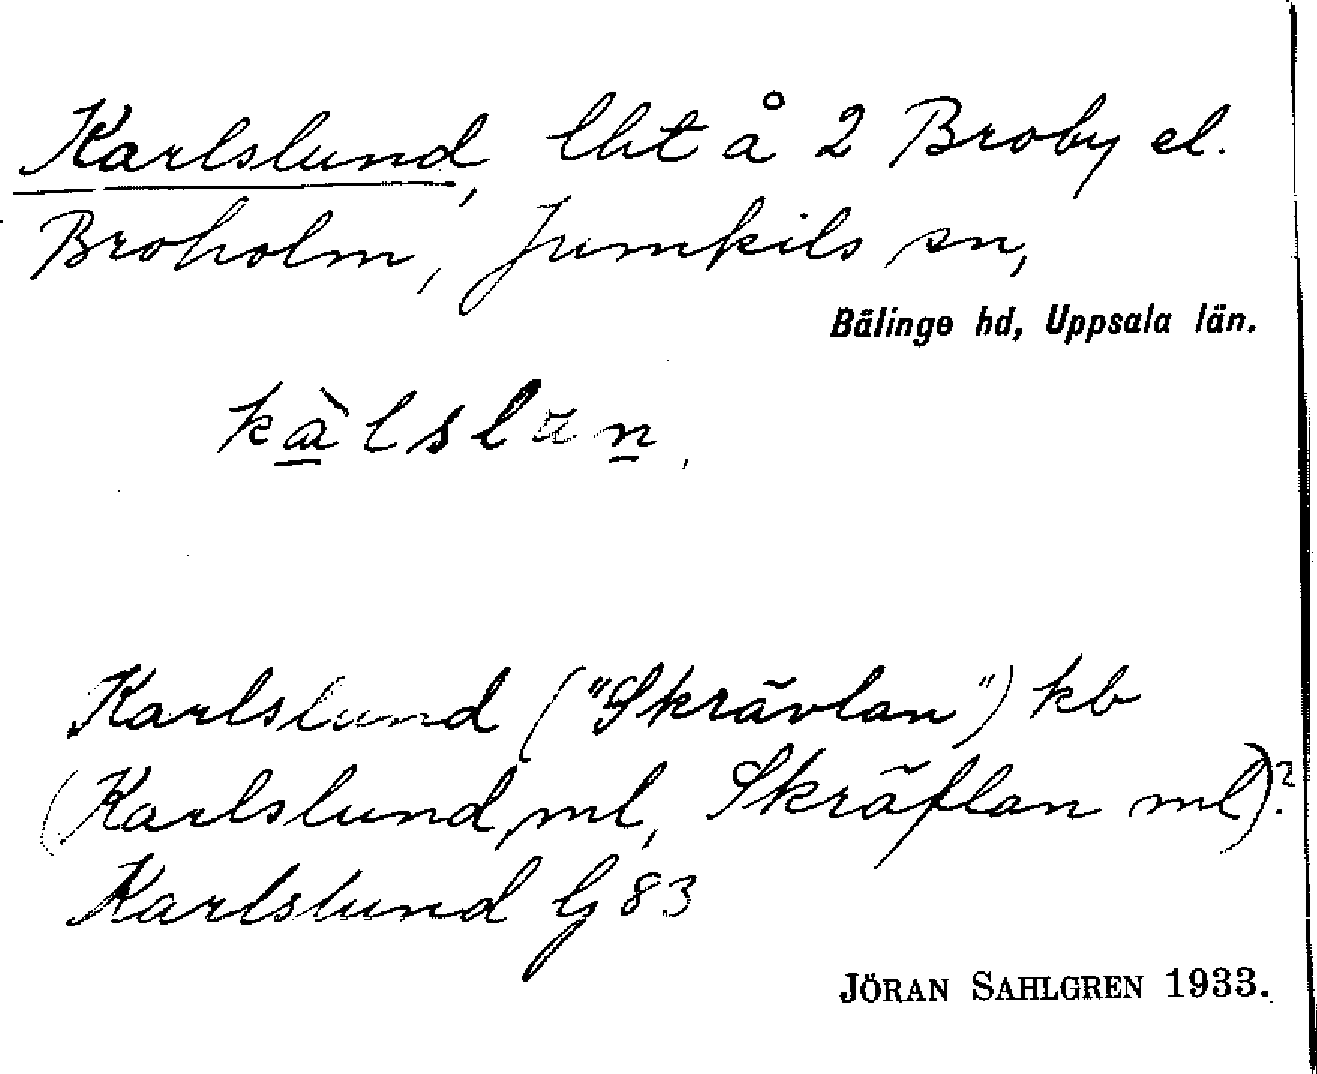 Karlslund, lht å 2 Broby el.
Broholm, Jumkils sn,
Bälinge hd, Uppsala län.
kàlslan,
Karlslund ("Skrävlan") kb
(Karlslund, ml, Skräflan ml)?
Karlslund lj 83
JÖRAN SAHLGREN 1933.